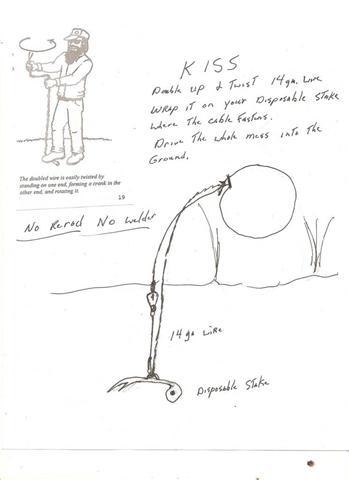 KISS
Double up & Twist 14 ga. wire
WRAP it on your Disposable Stake
where the cable fastens.
Drive the whole mess into the
Ground.
The doubled wire is easily twisted by
standing on one end, forming a crank in the
other end, and rotating it.
19
No Rerod No welder
14 ga wire
Disposable Stake